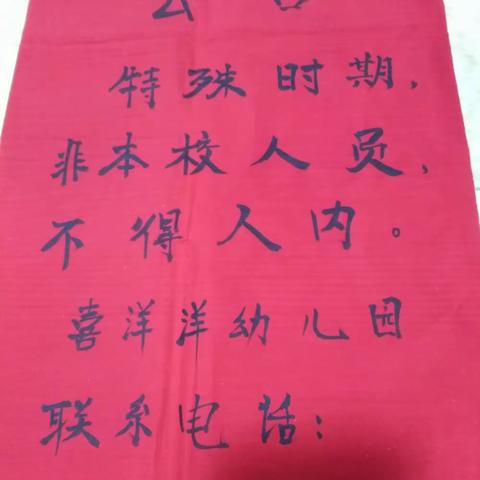 特殊时期，
非本校人员，
不得人内。
喜洋洋幼儿园
联系电话：